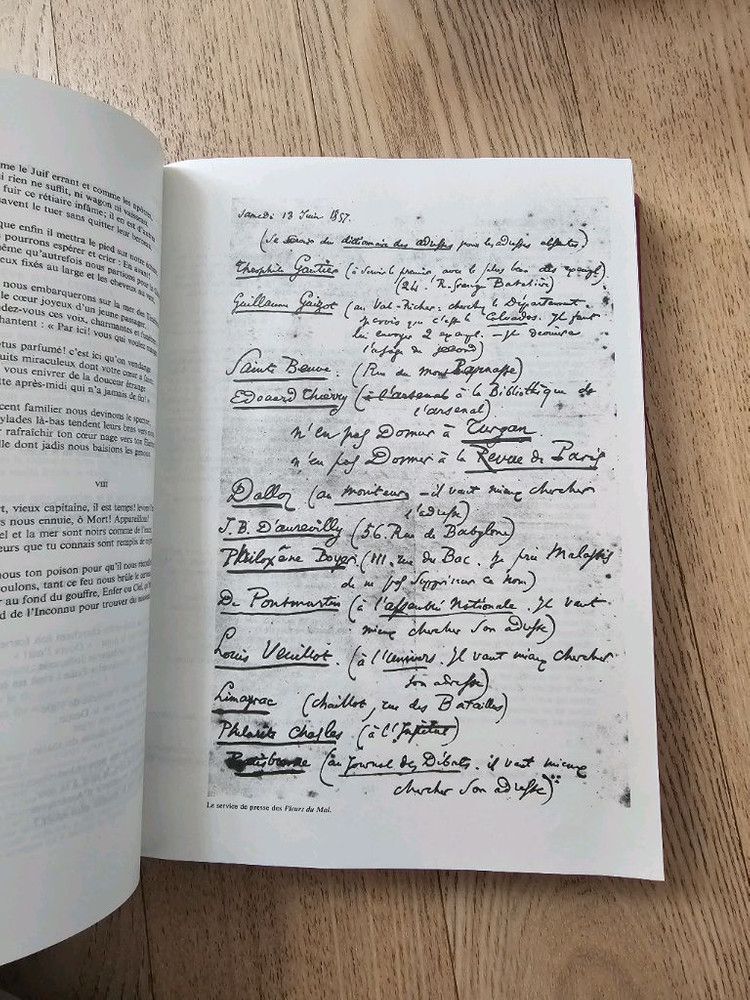 me le Juif errant et comme les apôtres,
i rien ne suffit, ni wagon ni vaisseau,
fuir ce rétiaire infâme; il en est d'autres
savent le tuer sans quitter leur berceau.
que enfin il mettra le pied sur notre
pourrons espérer et crier : En avant!
ême qu'autrefois nous partions pour la
eux fixés au large et les cheveux au vent,
nous embarquerons sur la mer des Ténèbres
le cœur joyeux d'un jeune passager.
dez-vous ces voix, charmantes et funèbres,
hantent : « Par ici! vous qui voulez
tus parfumé! c'est ici qu'on vendange
uits miraculeux dont votre cœur a faim;
vous enivrer de la douceur étrange
tte après-midi qui n'a jamais de fin! »
cent familier nous devinons le spectre;
ylades là-bas tendent leurs bras vers
rafraîchir ton cœur nage vers ton
lle dont jadis nous baisions les genoux.
VIII
rt, vieux capitaine, il est temps! levons
s nous ennuie, ô Mort! Appareillons!
el et la mer sont noirs comme de l'encre,
eurs que tu connais sont remplis de
nous ton poison pour qu'il nous
oulons, tant ce feu nous brûle le cerveau,
r au fond du gouffre, Enfer ou Ciel,
d de l'Inconnu pour trouver du
Samedi 13 Juin 1857.
(Se servir du dictionnaire des adresses pour les adresses absentes.)
Théophile Gautier (à servir le premier, avec le plus beau des exempl.)
(24. R. Grange Batelière)
Guillaume Guizot (au Val-Richer: cherchez le Département.
Je crois que c'est le Calvados. Il faut
lui envoyer 2 exempl. – Je devinerai
l'usage du second)
Sainte Beuve. (Rue du mont Parnasse)
Edouard Thierry (à l'arsenal à la Bibliothèque de
l'arsenal).
n'en pas Donner à Turgan.
n'en pas Donner à la Revue de Paris
Dalloz (au moniteur – il vaut mieux chercher
l'adresse)
J. B. D'aurevilly (56. Rue de Babylone)
Philoxène Boyer. (111. rue du Bac. Je prie Malassis
de ne pas supprimer ce nom)
De Pontmartin (à l'assemblée Nationale. Il vaut
mieux chercher son adresse)
Louis Veuillot. (à l'univers. Il vaut mieux chercher
son adresse)
Limayrac (chaillot, rue des Batailles)
Philarète Chasles (à l'Institut)
Ratisbonne (au Journal des Débats. il vaut mieux
chercher son adresse)
Le service de presse des Fleurs du Mal.